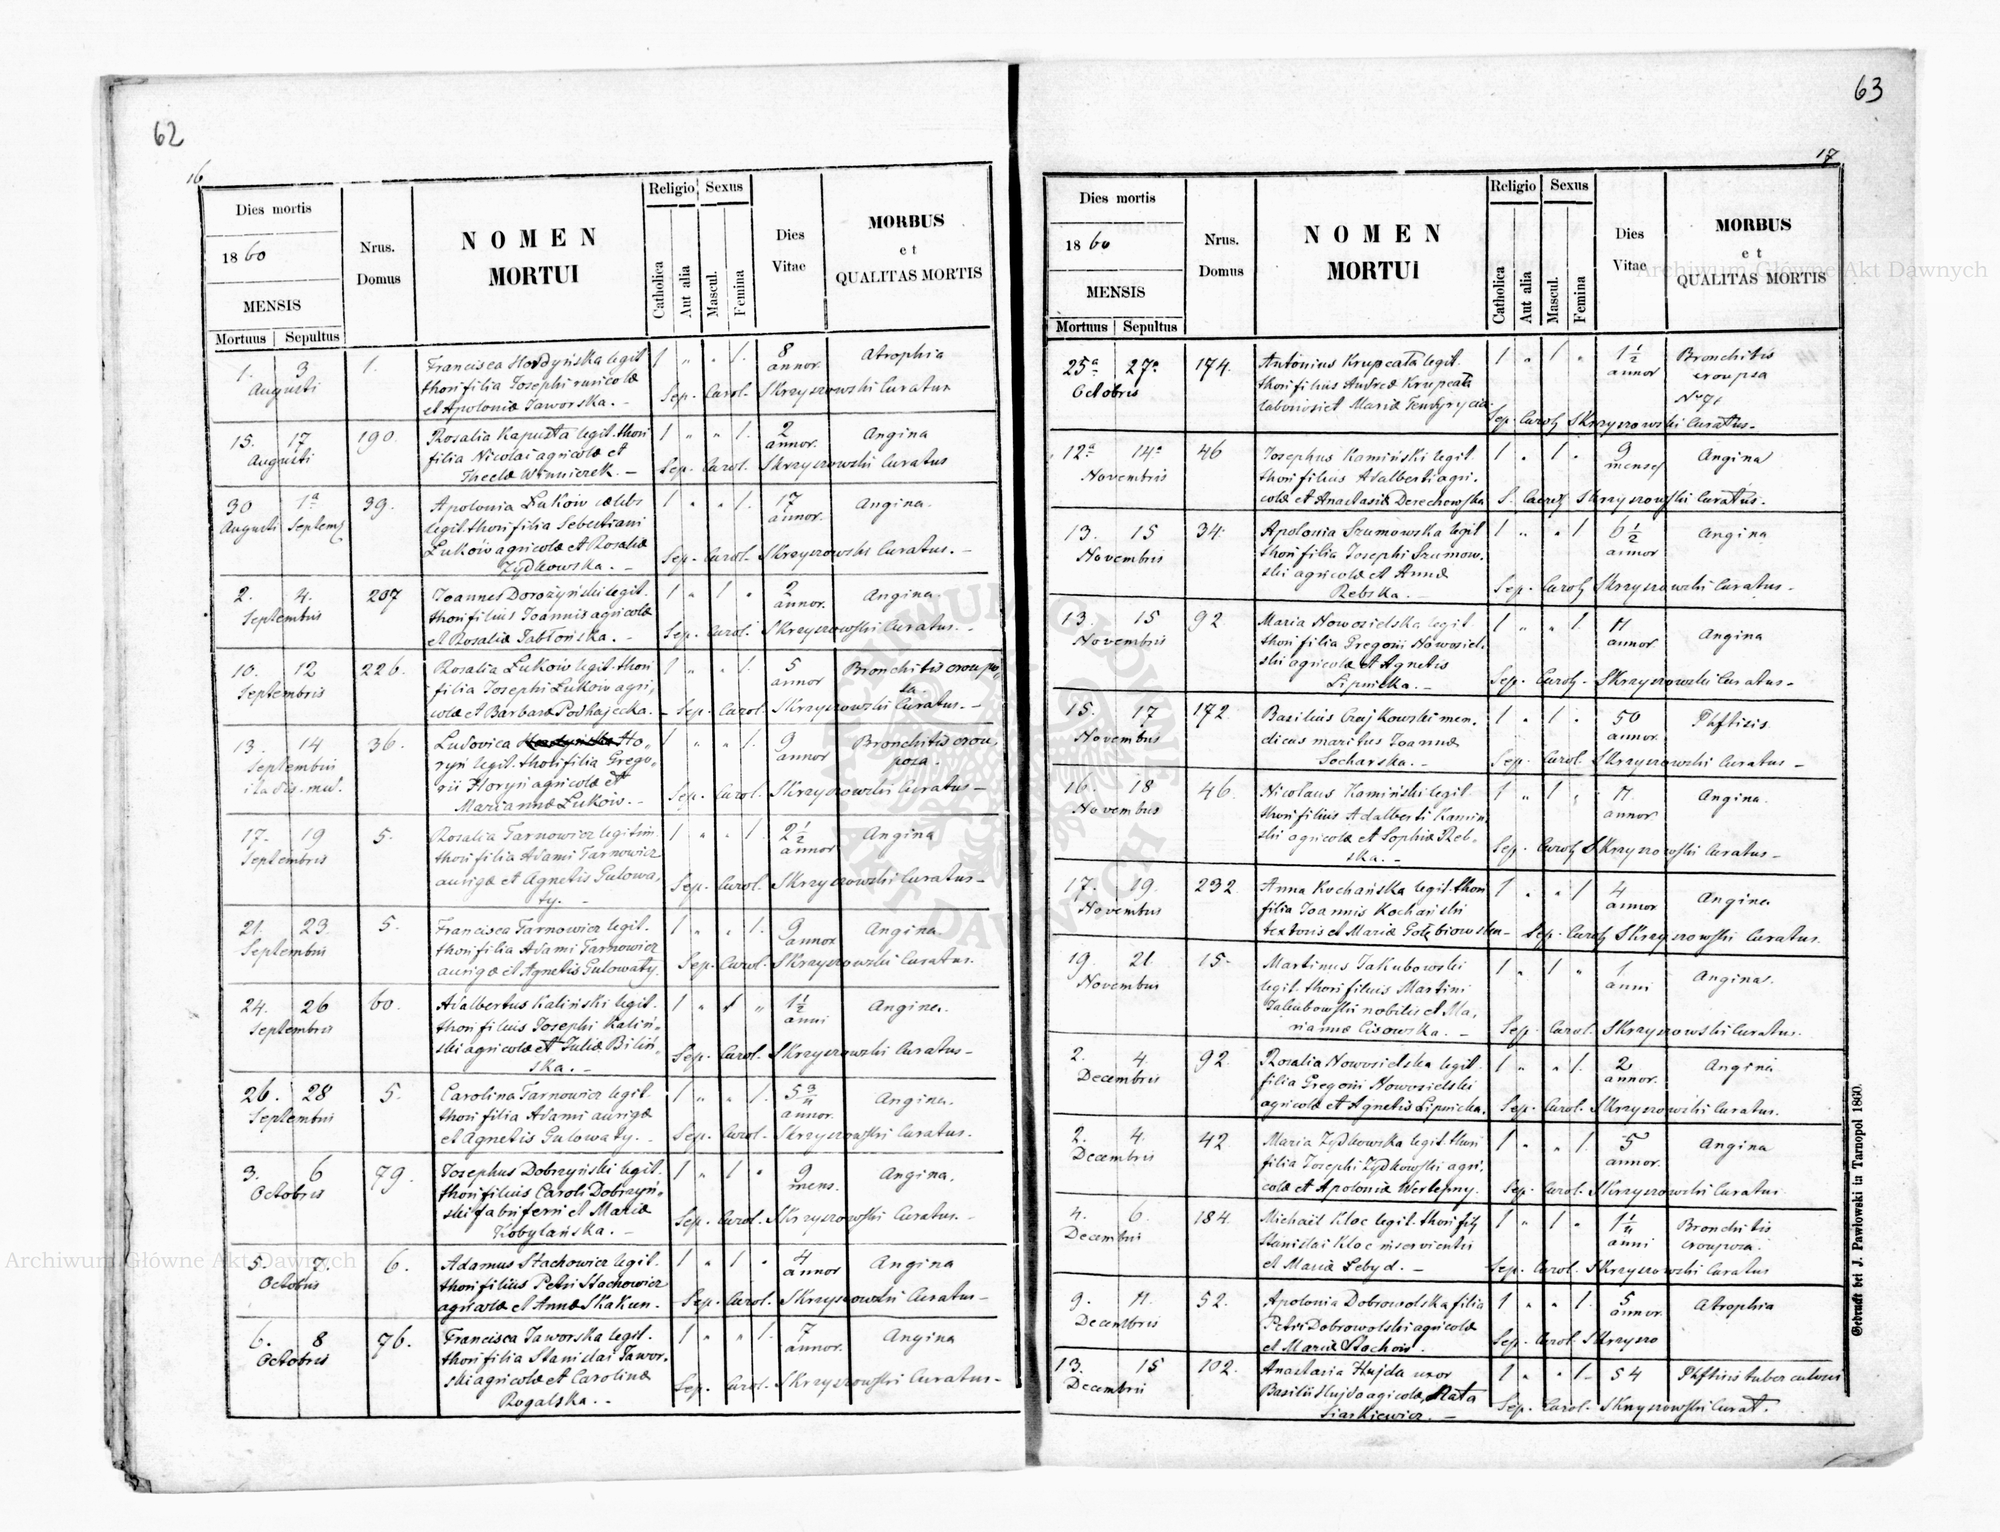 62
16
Dies mortis
1860
MENSIS
Mortuus Sepultus
Nrus.
Domus
NOMEN
MORTUI
Religio
Catholica
Aut alia
Sexus
Mascul.
Femina
Dies
Vitae
MORBUS
et
QUALITAS MORTIS
1. 3 1. Francisca Hordyńska legit. 1 " " 1. 8 Atrophia
Augusti thori filia Josephi ruricolæ annor.
et Apoloniæ Jaworska. – Sep. Carol. Skrzyszowski Curatus
15. 17 190. Rosalia Kapusta legit. thori 1 " " 1. 2 Angina
Augusti filia Nicolai agricolæ et annor.
Theclæ Winniczek. – Sep. Carol. Skrzyszowski Curatus
30 1a 39. Apolonia Łuków cælebs 1 " " 1. 17 Angina.
Augusti Septemb legit. thori filia Sebestiani annor.
Łuków agricolæ et Rosaliæ
Zydkowska. – Sep. Carol. Skrzyszowski Curatus. –
2. 4. 207 Joannes Dorożyński legit. 1 " 1 " 2 Angina.
Septembris thori filius Joannis agricolæ annor.
et Rosaliæ Jabłońska. – Sep. Carol. Skrzyszowski Curatus. –
10. 12 226. Rosalia Łuków legit. thori 1 " " 1. 5 Bronchitis croupo
Septembris filia Josephi Łuków agri, annor sa.
colæ et Barbaræ Podhajecka. – Sep. Carol. Skrzyszowski Curatus. –
13. 14 36. Ludovica Ho, 1 " " 1. 9 Bronchitis crou,
Septembris ryń legit. thori filia Grego, annor posa.
ita dis. mul. rii Horyń agricolæ et
Mariannæ Łuków. – Sep. Carol. Skrzyszowski Curatus –
17. 19 5. Rosalia Tarnowicz legitim 1 " " 1. 2 1/2 Angina
Septembris thori filia Adami Tarnowicz annor
aurigæ et Agnetis Gulowa,
ty. – Sep. Carol. Skrzyszowski Curatus –
21. 23. 5. Francisca Tarnowicz legit. 1 " " 1. 9 Angina.
Septembris thori filia Adami Tarnowicz annor
aurigæ et Agnetis Gulowaty. Sep. Carol. Skrzyszowski Curatus.
24. 26 60. Adalbertus Kaliński legit. 1 " 1 " 1 1/2 Angina.
Septembris thori filius Josephi Kaliń, anni
ski agricolæ et Juliæ Biliń,
ska. – Sep. Carol. Skrzyszowski Curatus –
26. 28 5. Carolina Tarnowicz legit. 1 " " 1. 5 3/4 Angina.
Septembris thori filia Adami aurigæ annor.
et Agnetis Gulowaty. – Sep. Carol. Skrzyszowski Curatus.
3. 6 79. Josephus Dobrzyński legit. 1 " 1 " 9 Angina.
Octobris thori filius Caroli Dobrzyń, mens.
ski fabri ferri et Mariæ
Kobylańska. – Sep. Carol. Skrzyszowski Curatus. –
5. 7. 6. Adamus Stachowicz legit. 1 " 1 " 4 Angina
Octobris thori filius Petri Stachowicz annor
agricolæ et Annæ Skakun. Sep. Carol. Skrzyszowski Curatus –
6. 8 76. Francisca Jaworska legit. 1 " " 1. 7 Angina
Octobris thori filia Stanislai Jawor, annor.
ski agricolæ et Carolinæ
Rogalska. – Sep. Carol. Skrzyszowski Curatus –
63
17
Dies mortis
1860
MENSIS
Mortuus Sepultus
Nrus.
Domus
NOMEN
MORTUI
Religio
Catholica
Aut alia
Sexus
Mascul.
Femina
Dies
Vitae
MORBUS
et
QUALITAS MORTIS
25a 27a 174. Antonius Krupcata legit. 1 " 1 " 1 1/2 Bronchitis
Octobris thori filius Andreæ Krupcata annor croupsa
laboriosi et Mariæ
Sep. Carolj Skrzyszowski Curatus –
12a 14a 46 Josephus Kamiński legit. 1 " 1 " 9 Angina
Novembris thori filius Adalberti agri, mensej
colæ et Anastasiæ Derechowska S. Carolj Skrzyszowski Curatus. –
13. 15 34. Apolonia Szumowska legit 1 " " 1 6 1/2 Angina
Novembris thori filia Josephi Szumow, annor
ski agricolæ et Annæ
Rebska. – Sep. Carolj Skrzyszowski Curatus –
13. 15 92. Maria Nowosielska legit. 1 " " 1. 11 Angina
Novembris thori filia Gregorii Nowosiel, annor
ski agricolæ et Agnetis
Lipnicka. – Sep. Carolj. Skrzyszowski Curatus –
15. 17 172. Basilius Czajkowski men, 1 " 1 " 50 Phftisis
Novembris dicus maritus Joannæ annor.
Socharska. – Sep. Carol. Skrzyszowski Curatus –
16. 18 46. Nicolaus Kamiński legit. 1 " 1 " 11. Angina.
Novembris thori filius Adalberti Kamin, annor
ski agricolæ et Sophiæ Reb,
ska. – Sep. Carolj Skrzyszowski Curatus –
17. 19. 232. Anna Kochańska legit. thori 1 " " 1 4 Angina
Novembris filia Joannis Kochański annor
textoris et Mariæ Gołębiowska – Sep. Carolj Skrzyszowski Curatus.
19. 21. 15. Martinus Jakubowski 1 " 1 " 1 Angina.
Novembris legit. thori filius Martini anni
Jakubowski nobilis et Ma,
riannæ Cisowska. – Sep. Carol. Skrzyszowski Curatus.
2. 4. 92. Rosalia Nowosielska legit. 1 " " 1. 2 Angina
Decembris filia Gregorii Nowosielski annor.
agricolæ et Agnetis Lipnicka. Sep. Carol. Skrzyszowski Curatus.
2. 4. 42 Maria Zydkowska legit. thori 1 " " 1. 5 Angina
Decembris filia Josephi Zydkowski agri, annor.
colæ et Apoloniæ Werlepny. Sep. Carol. Skrzyszowski Curatus
4. 6. 184. Michael Kloc legit. thori filj 1 " 1 " 1 1/4 Bronchitis
Decembris Stanislai Kloc inservientis anni crouposa.
et Mariæ Lebyd. – Sep. Carol. Skrzyszowski Curatus
9. 11. 52. Apolonia Dobrowolska filia 1 " " 1. 5 Atrophia
Decembris Petri Dobrowolski agricolæ annor.
et Mariæ Stachów. Sep. Carol. Skrzyszo
13. 15 102. Anastasia Hujda uxor 1 " " 1 – 54 Phftisis tuberculosis
Decembris Basilii Hujda agricolæ, Nata
Siarkiewicz. – Sep. Carol. Skrzyszowski Curat.
Gedruckt bei J. Pawłowski in Tarnopol 1860.
Archiwum Główne Akt Dawnych
Archiwum Główne Akt Dawnych
ARCHIWUM GŁÓWNE AKT DAWNYCH